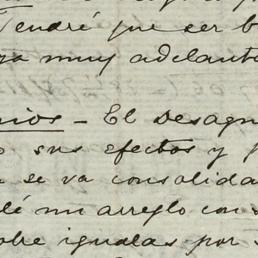 Tendré que ser b
muy adelant
nios - El Desagu
sus efectos y p
se va consolida
dé un arreglo con s
obre igualas por s